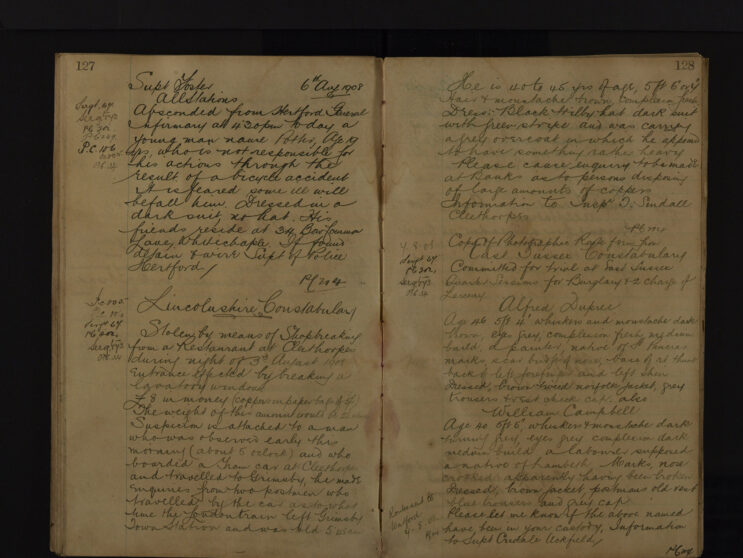 127
Supt Foster 6th Aug 1908
All Stations
Absconded from Hertford General
Infirmary at 4.30pm today a
young man name Age 19
yrs, who is not responsible for
his actions through the
result of a bicycle accident
It is feared some ill will
befall him. Dressed in a
dark suit no hat. His
friends reside at 34
Lane, Whitechapel. If found
detain & wire Supt of Police
Hertford
PC 204
Lincolnshire Constabulary
Stolen by means of Shopbreaking
from a Restaurant at Cleethorpes
during night of 3rd August 1908
Entrance effected by breaking a
lavatory window
£8 in money (coppers in paper bags of 5/-)
The weight of this amount would be
Suspicion is attached to a man
who was observed early this
morning (about 5 oclock) and who
boarded a Tram car at Cleethorpes
and travelled to Grimsby, he made
enquiries from two postmen who
travelled by the car as to what
time the London train left Grimsby
Town Station and was told
128
He is 40 to 45 yrs of age, 5ft 6 or 7
Hair & moustache brown, complexion fresh
Dress: Black trilby hat dark suit
with green stripe and was carrying
a grey overcoat in which he appeared
to have something rather heavy
Please cause inquiry to be made
at Banks as to persons disposing
of large amounts of coppers
Information to Inspr
Cleethorpes
Copy of Photographic Route form from
East Sussex Constabulary
Committed for trial at East Sussex
Quarter Sessions for Burglary & 2 charges of
Larceny
Alfred Dupree
Age 46 5ft 4 whiskers and moustache dark
brown, eyes grey, complexion fresh, medium
build, a painter, native of St
marks, scar bridge of nose, base of rt thumb
back of left forefinger and left shin
Dressed, brown tweed norfolk jacket, grey
trousers & vest check cap. also
William Campbell
Age 40 5ft 5, whiskers & moustache dark
turning grey, eyes grey complexion dark
medium build, a labourer, supposed
a native of Lambeth Marks, nose
crooked apparently having been broken
Dressed, brown jacket, postmans old vest
blue trousers and grey cap
Please let me know if the above named
have been in your custody, Information
to Supt Uckfield